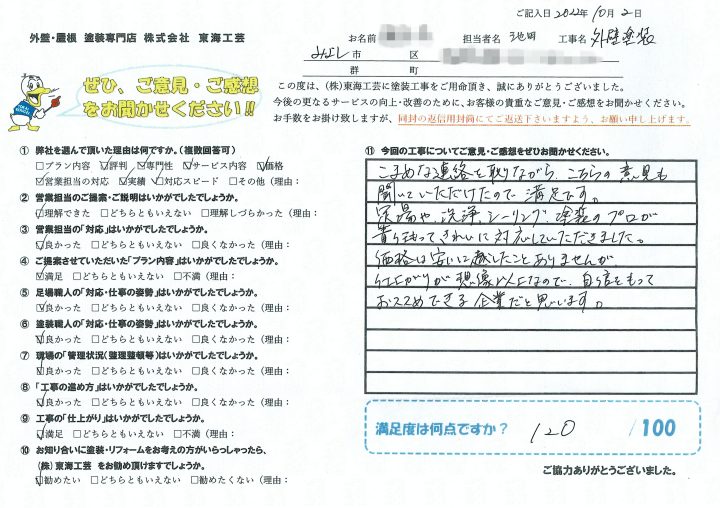 ご記入日 2022年 10月 2日
外壁・屋根 塗装専門店 株式会社 東海工芸
お名前 担当者名 池田 工事名 外壁塗装
みよし 市 区
群 町
ぜひ、ご意見・ご感想
をお聞かせください!!
この度は、(株)東海工芸に塗装工事をご用命頂き、誠にありがとうございました。
今後の更なるサービスの向上・改善のために、お客様の貴重なご意見・ご感想をお聞かせください。
お手数をお掛け致しますが、同封の返信用封筒にてご返送下さいますよう、お願い申し上げます。
① 弊社を選んで頂いた理由は何ですか。(複数回答可)
□プラン内容 ☑評判 ☑専門性 ☑サービス内容 ☑価格
☑営業担当の対応 ☑実績 ☑対応スピード □その他(理由:
② 営業担当のご提案・ご説明はいかがでしたでしょうか。
☑理解できた □どちらともいえない □理解しづらかった(理由:
③ 営業担当の「対応」はいかがでしたでしょうか。
☑良かった □どちらともいえない □良くなかった(理由:
④ ご提案させていただいた「プラン内容」はいかがでしたでしょうか。
☑満足 □どちらともいえない □不満(理由:
⑤ 足場職人の「対応・仕事の姿勢」はいかがでしたでしょうか。
☑良かった □どちらともいえない □良くなかった(理由:
⑥ 塗装職人の「対応・仕事の姿勢」はいかがでしたでしょうか。
☑良かった □どちらともいえない □良くなかった(理由:
⑦ 現場の「管理状況(整理整頓等)はいかがでしたでしょうか。
☑良かった □どちらともいえない □良くなかった(理由:
⑧ 「工事の進め方」はいかがでしたでしょうか。
☑良かった □どちらともいえない □良くなかった(理由:
⑨ 工事の「仕上がり」はいかがでしたでしょうか。
☑満足 □どちらともいえない □不満(理由:
⑩ お知り合いに塗装・リフォームをお考えの方がいらっしゃったら、
(株)東海工芸 をお勧め頂けますでしょうか。
☑勧めたい □どちらともいえない □勧めたくない(理由:
⑪ 今回の工事についてご意見・ご感想をぜひお聞かせください。
こまめな連絡を取りながら、こちらの意見も
聞いていただけたので満足です。
足場や、洗浄、シーリング、塗装のプロが
責任もってきれいに対応していただきました。
価格は安いに越したことありませんが、
仕上がりが想像以上なので、自信をもって
おススめできる企業だと思います。
満足度は何点ですか? 120 /100
ご協力ありがとうございました。